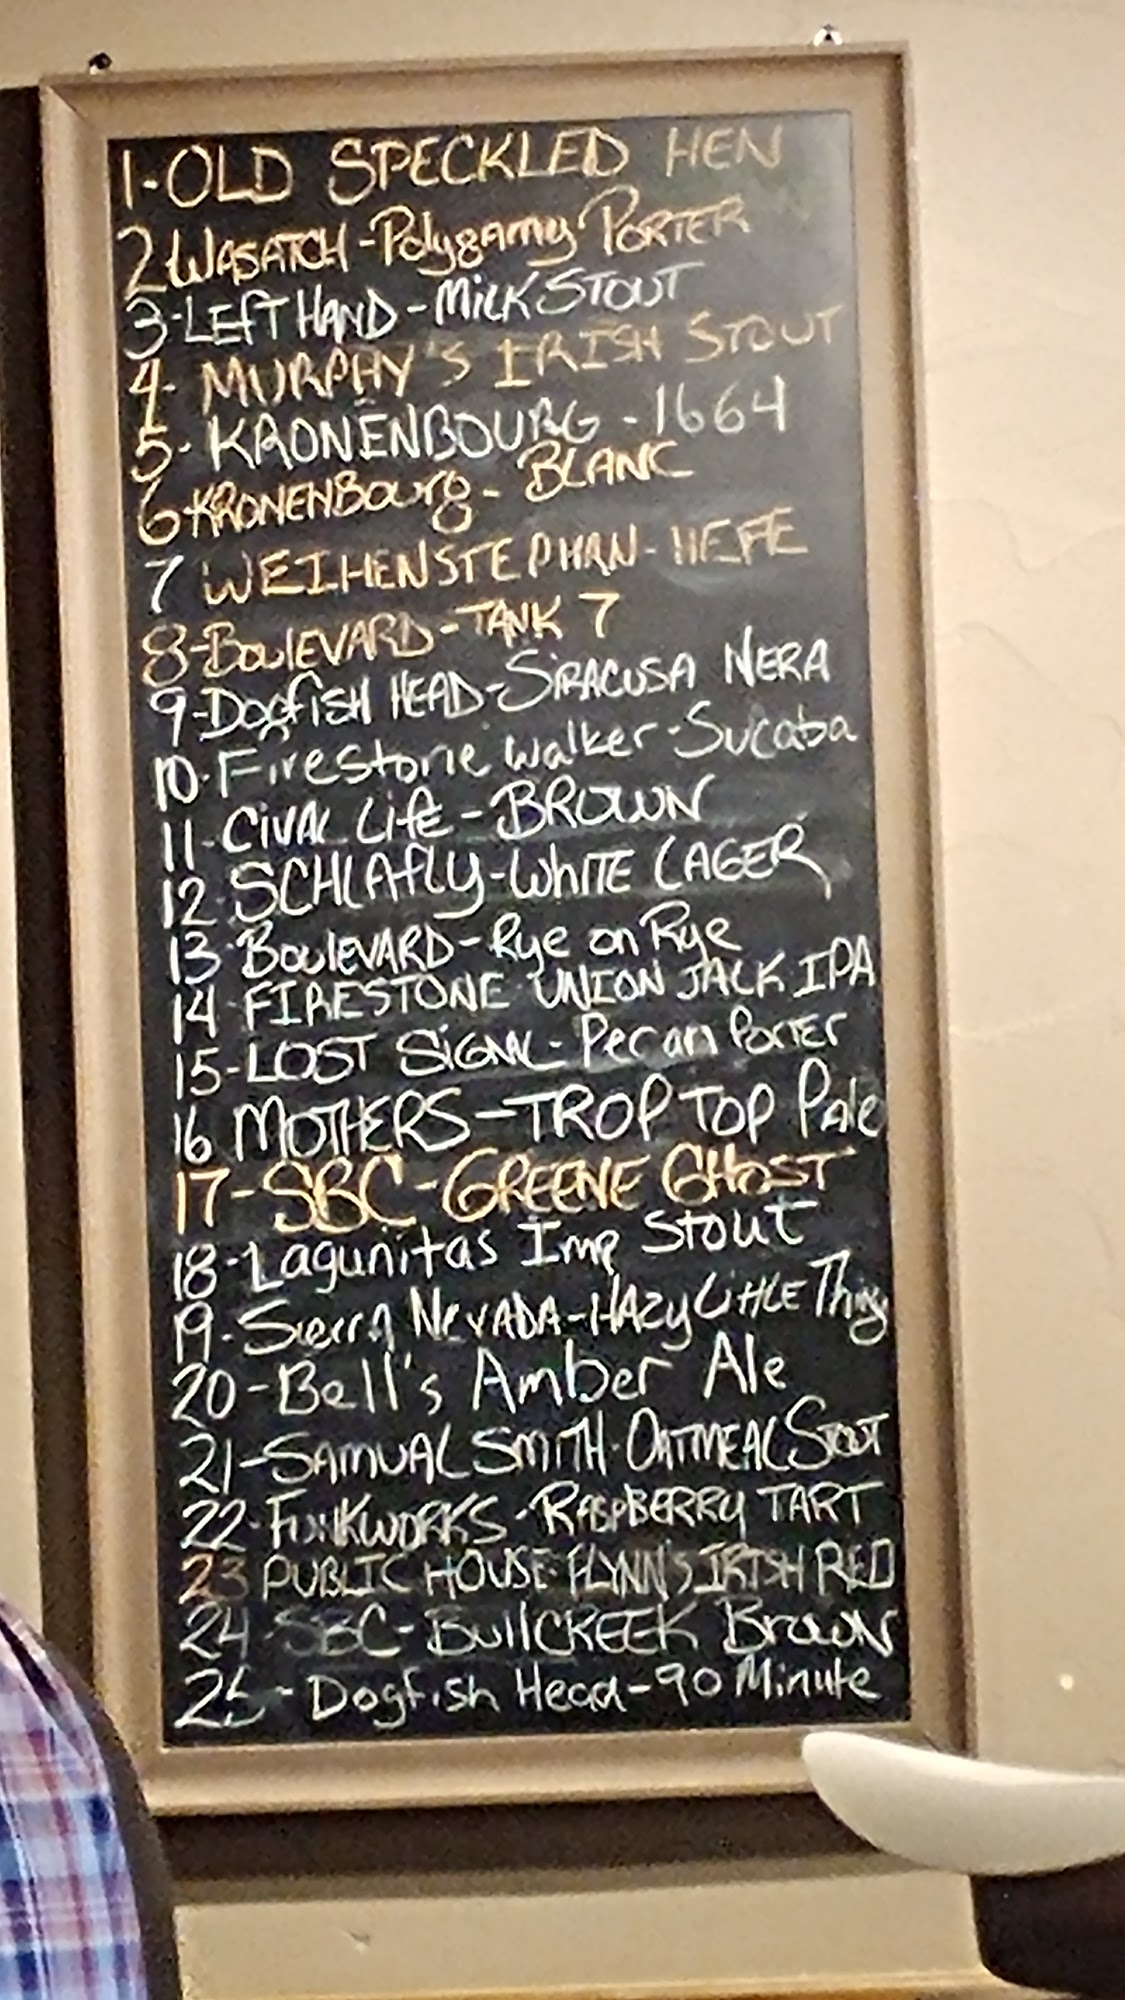 1-OLD SPECKLED HEN
2 WASATCH - Polygamy PORTER
3-LEFT HAND - MILK STOUT
4- MURPHY'S IRISH STOUT
5- KRONENBOURG - 1664
6 KRONENBourg - BLANC
7 WEIHENSTEPHAN - HEFE
8-BOULEVARD - TANK 7
9-DOGFISH HEAD-SIRACUSA NERA
10-Firestone walker-Sucaba
11-CIVAL LIFE - BROWN
12 SCHLAFLY-WHITE LAGER
13 BOULEVARD - Rye on Rye
14-FIRESTONE UNION JACK IPA
15-LOST SIGNAL-Pecan PORTER
16 MOTHERS - TROP TOP Pale
17-SBC-GREENE GHOST
18-Lagunitas Imp Stout
19-Sierra NEVADA-HAZY LITTLE Thing
20-Bell's Amber Ale
21-SAMUAL SMITH-OATMEAL STOUT
22-FUNKWORKS-RASPBERRY TART
23 PUBLIC HOUSE-FLYNN'S IRISH RED
24-SBC-BullCREEK Brown
25-Dogfish Head-90 Minute